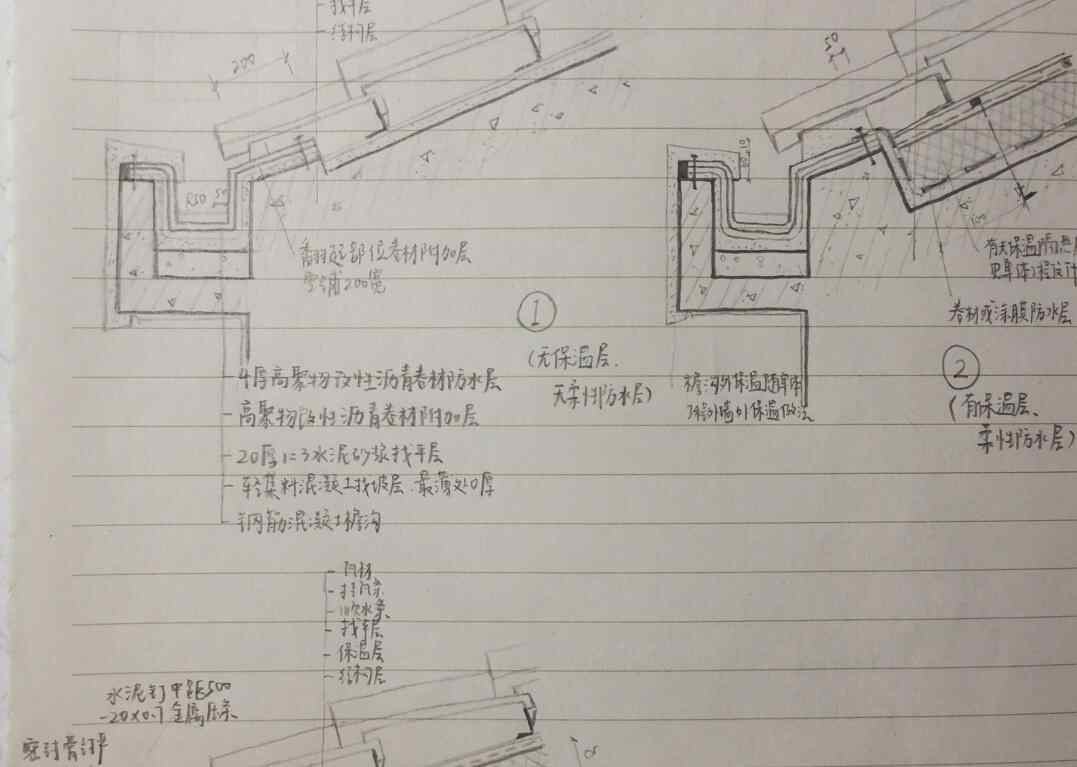 找平层
结构层
200
50
R50
50
翻起部位卷材附加层
空铺200宽
①
(无保温层、
无柔性防水层)
4厚高聚物改性沥青卷材防水层
高聚物改性沥青卷材附加层
20厚1:3水泥砂浆找平层
轻集料混凝土找坡层.最薄处0厚
钢筋混凝土檐沟
檐沟外保温随单体
外墙外保温做法
有无保温隔热
见单体工程设计
卷材或涂膜防水层
②
(有保温层、
柔性防水层)
瓦材
挂瓦条
顺水条
找平层
保温层
结构层
水泥钉中距500
-20×0.7金属压条
密封膏封平
α